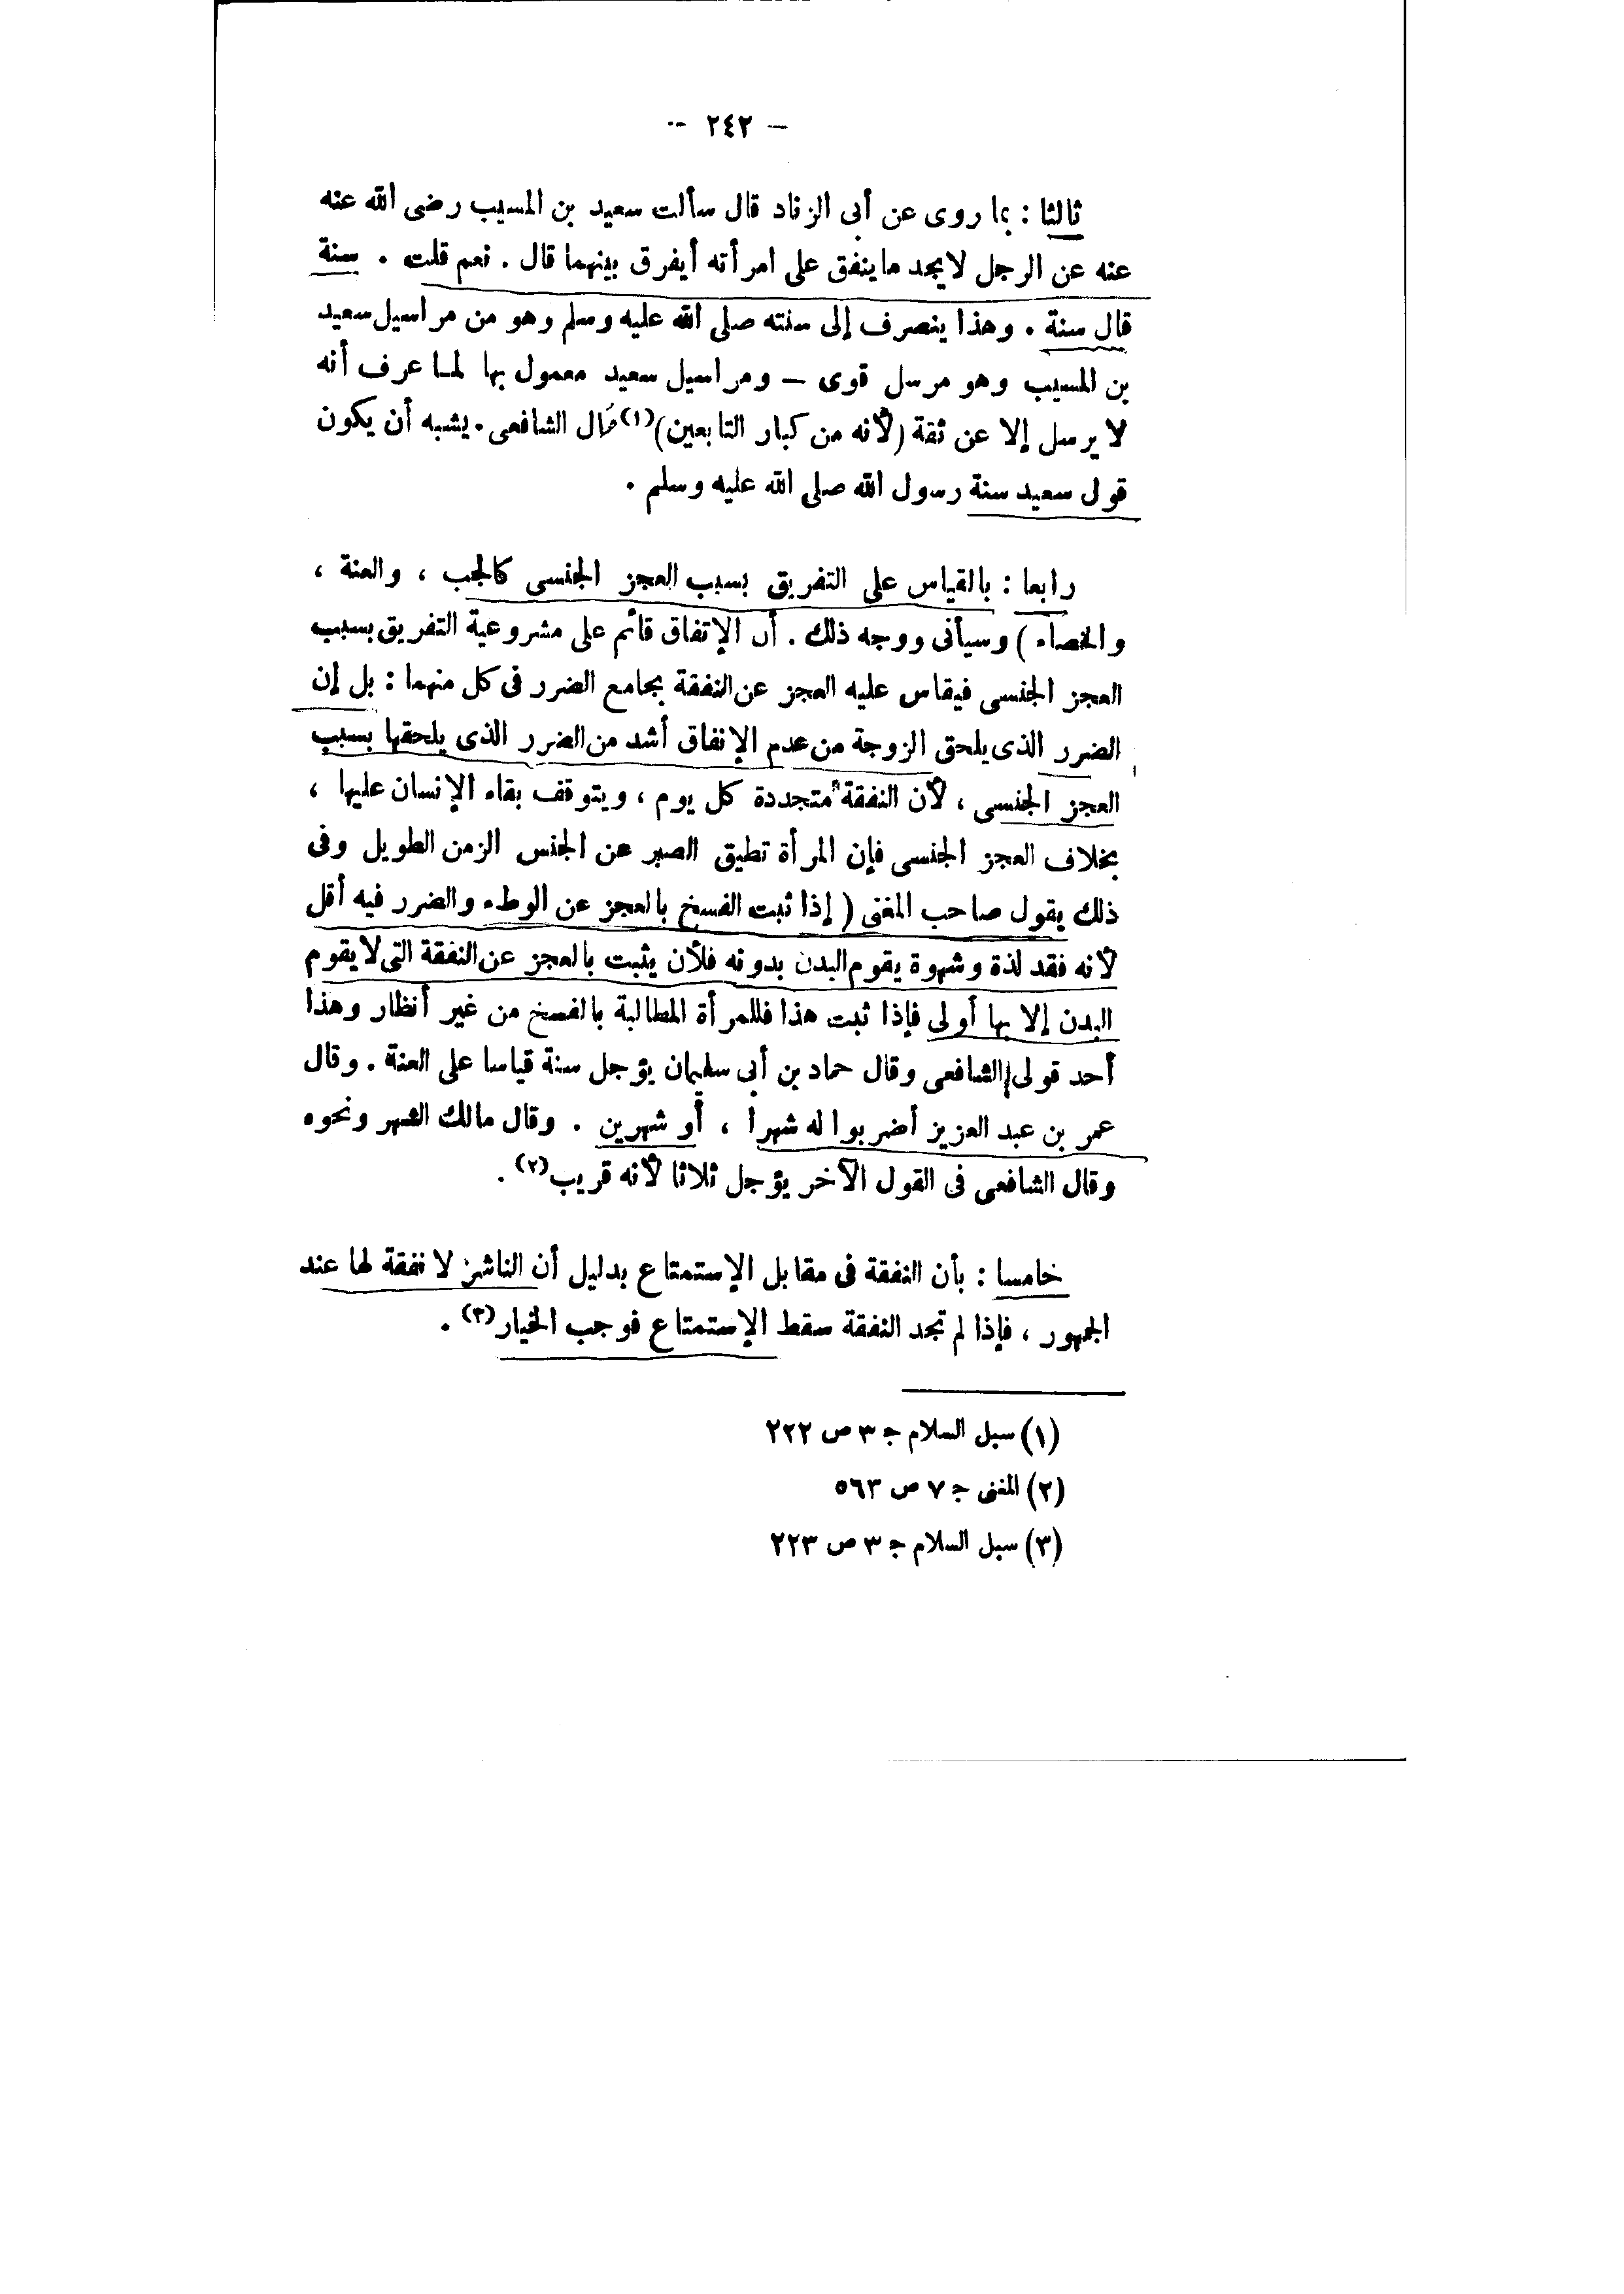 - ٢٤٢ -
ثالثا : بما روى عن أبى الزناد قال سألت سعيد بن المسيب رضى الله عنه
عنه عن الرجل لا يجد ما ينفق على امرأته أيفرق بينهما قال . نعم قلت . سنة
قال سنة . وهذا ينصرف إلى سنته صلى الله عليه وسلم وهو من مراسيل سعيد
بن المسيب وهو مرسل قوى – ومراسيل سعيد معمول بها لما عرف أنه
لا يرسل إلا عن ثقة (لأنه من كبار التابعين)(١) قال الشافعى . يشبه أن يكون
قول سعيد سنة رسول الله صلى الله عليه وسلم .
رابعا : بالقياس على التفريق بسبب العجز الجنسى كالجب ، والعنة ،
والخصاء ) وسيأتى ووجه ذلك . أن الإتفاق قائم على مشروعية التفريق بسبب
العجز الجنسى فيقاس عليه العجز عن النفقة بجامع الضرر فى كل منهما : بل إن
الضرر الذى يلحق الزوجة من عدم الإنفاق أشد من الضرر الذى يلحقها بسبب
العجز الجنسى ، لأن النفقة متجددة كل يوم ، ويتوقف بقاء الإنسان عليها ،
بخلاف العجز الجنسى فإن المرأة تطيق الصبر عن الجنس الزمن الطويل وفى
ذلك يقول صاحب المغنى ( إذا ثبت الفسخ بالعجز عن الوطء والضرر فيه أقل
لأنه فقد لذة وشهوة يقوم البدن بدونه فلأن يثبت بالعجز عن النفقة التى لا يقوم
البدن إلا بها أولى فإذا ثبت هذا فللمرأة المطالبة بالفسخ من غير أنظار وهذا
أحد قولى الشافعى وقال حماد بن أبى سليمان يؤجل سنة قياسا على العنة . وقال
عمر بن عبد العزيز أضربوا له شهرا ، أو شهرين . وقال مالك الشهر ونحوه
وقال الشافعى فى القول الآخر يؤجل ثلاثا لأنه قريب(٢) .
خامسا : بأن النفقة فى مقابل الإستمتاع بدليل أن الناشز لا نفقة لها عند
الجمهور ، فإذا لم تجد النفقة سقط الإستمتاع فوجب الخيار(٣) .
(١) سبل السلام ج ٣ ص ٢٢٢
(٢) المغنى ج ٧ ص ٥٦٣
(٣) سبل السلام ج ٣ ص ٢٢٣